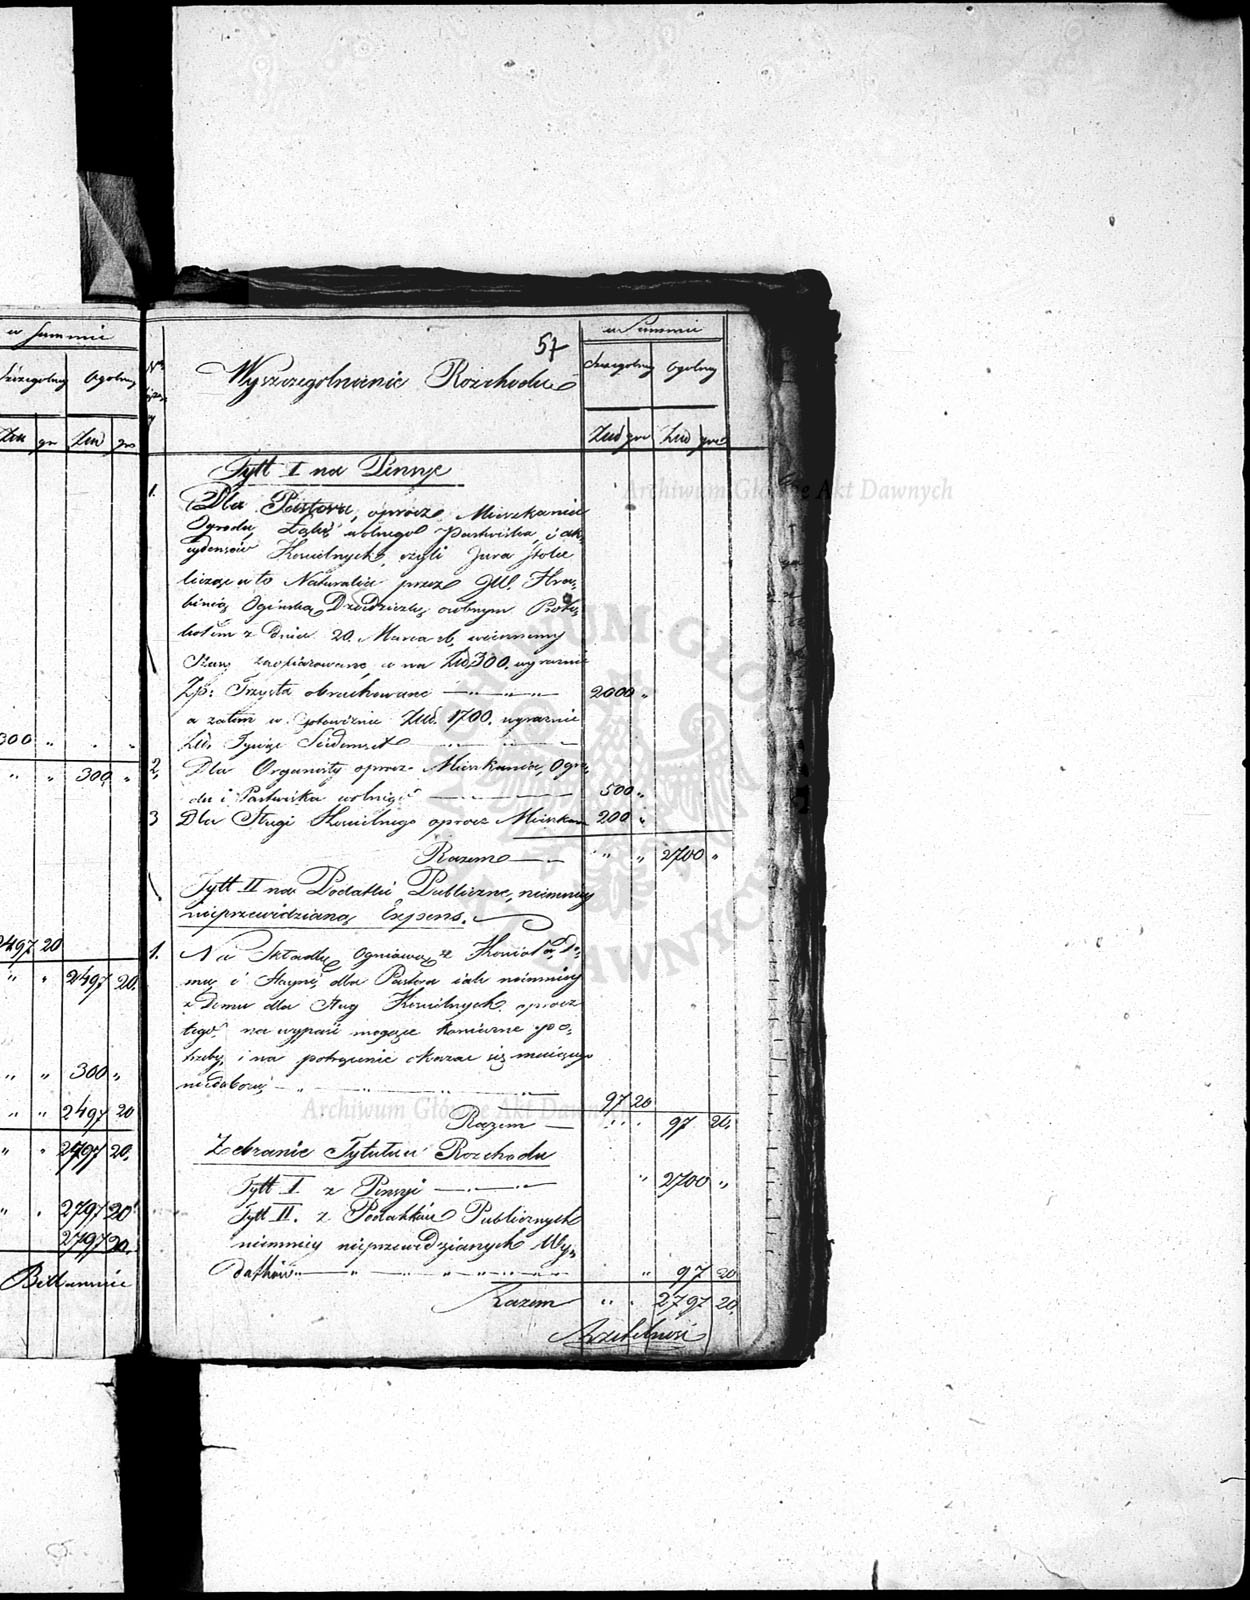 w Summie
Szczegolney Ogolney
Złd gr Złd gr
300 " " "
" " 300 "
2497 20
" " 2497 20.
" " 300 "
" " 2497 20
" " 2497 20.
" " 2797 20
2797 20.
57
Nr
Wyszczegolnienie Rozchodu
w Summie
Szczegolney Ogolney
Złd gr Złd gr
Tytł I na Pensye
1. Dla Pastora, oprócz Mieszkania
Ogrodu, Łąki wolnego Pastwiska, i ak,
cydensów Kościelnych, czyli Jura stolae
licząc w to Naturalia przez JW. Hra,
binią Ogińską Dziedziczkę osobnym Proto,
kołem z dnia 20. Marca rb,
zaofiarowane, a na Złd 300. wyraźnie
Zp: Trzysta obrachowane 2000 "
a zatem w Gotowiźnie Złd. 1700. wyraźnie
Złd. Tysiąc Siedemset
2, Dla Organisty oprocz Mieszkania, Ogro,
du i Pastwiska wolnego 500 "
3 Dla Sługi Kościelnego oprocz Mieszkan 200 "
Razem " " 2700 "
Tytł II na Podatki Publiczne, niemniey
nieprzewidzianą Expens.
1. Na Składkę Ogniową z Kościoła, Do,
mu i Stayni dla Pastora iako niemniey
z Domu dla Sług Kościelnych oprocz
tego na wypaść mogące konieczne po,
trzeby i na potrącenie okazać się mogącego
niedoboru 97 20
Razem " " 97 20.
Zebranie Tytułów Rozchodu
Tytł I z Pensyi " 2700 "
Tytł II. z Podatków Publicznych
niemniey nieprzewidzianych Wy,
datków " 97 20
Razem " " 2797 20.
Archiwum Główne Akt Dawnych
Archiwum Główne Akt Dawnych
ARCHIWUM GŁÓWNE AKT DAWNYCH